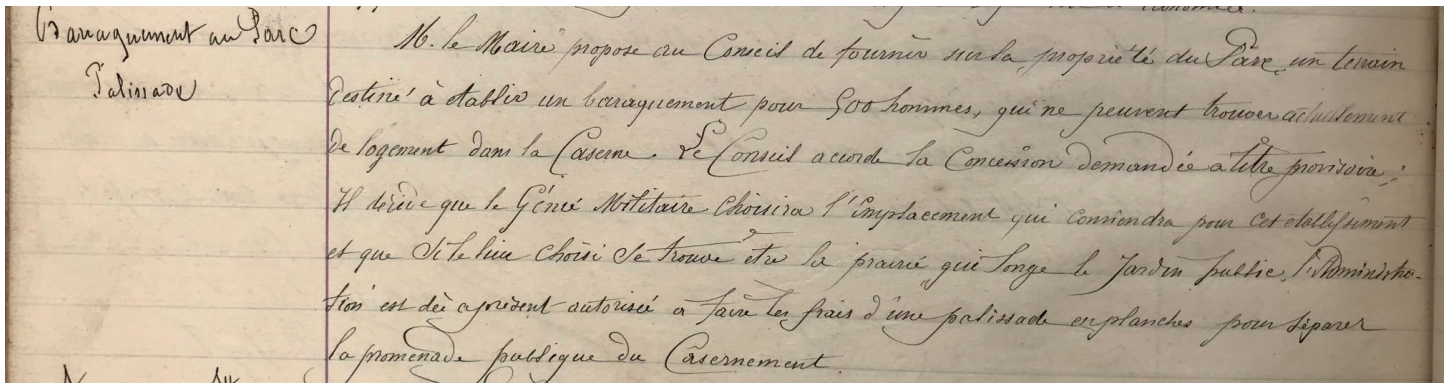 Baraquement au Parc
Palissade
économie.
M. le Maire propose au Conseil de fournir sur la propriété du Parc, un terrain
destiné à établir un baraquement pour 500 hommes, qui ne peuvent trouver actuellement
de logement dans la Caserne. Le Conseil accorde la Concession demandée à titre provisoire;
Il décide que le Génie Militaire choisira l'Emplacement qui conviendra pour cet établissement
et que si le lieu choisi se trouve être la prairie qui longe le Jardin public, l'Administra-
tion est dès à présent autorisée à faire les frais d'une palissade en planches pour séparer
la promenade publique du Casernement.